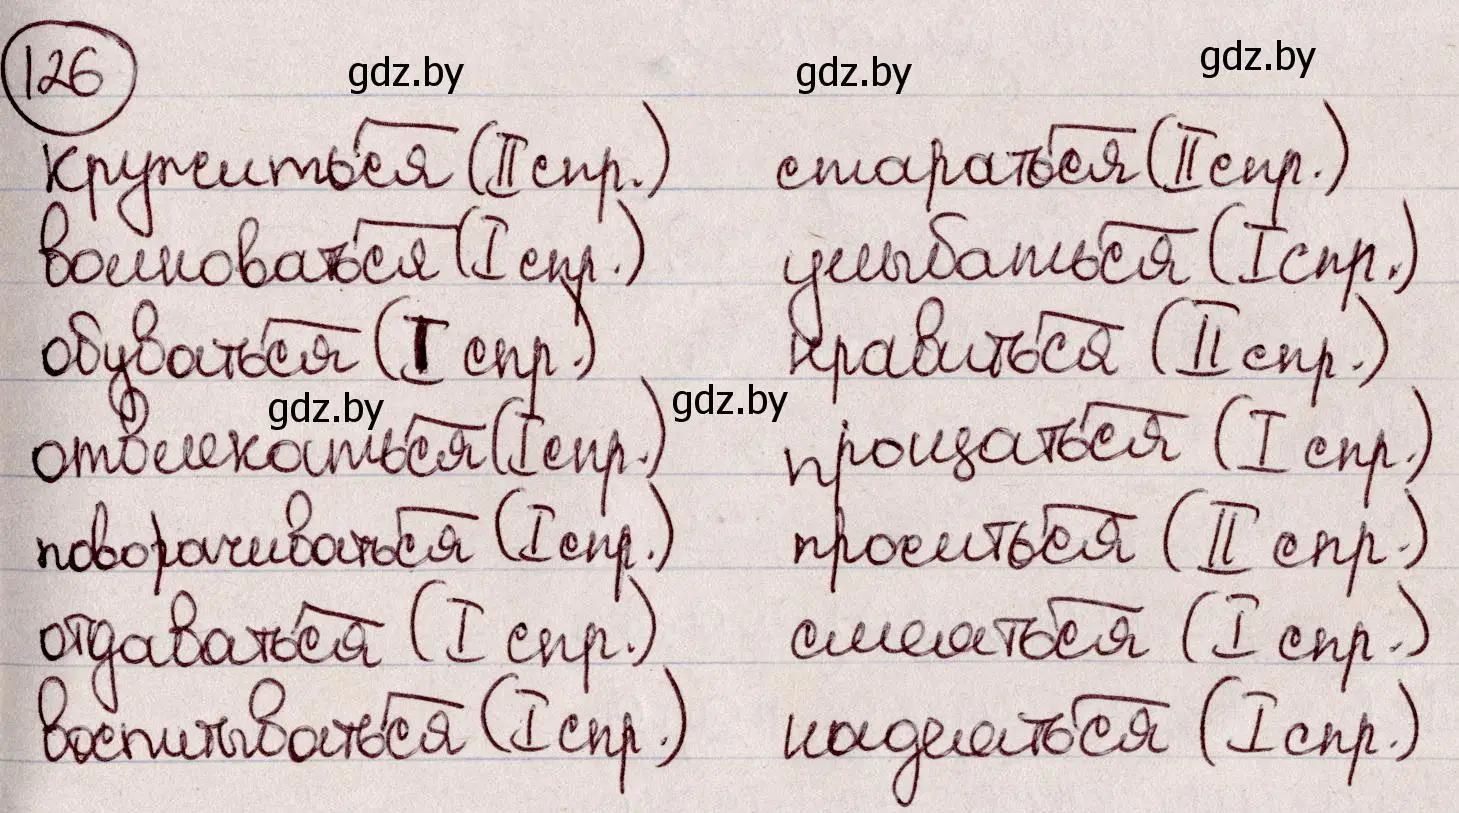 126
gdz.by
gdz.by
gdz.by
кружиться (II спр.)
стараться (II спр.)
волноваться (I спр.)
улыбаться (I спр.)
обуваться (I спр.)
нравиться (II спр.)
gdz.by
gdz.by
отвлекаться (I спр.)
прощаться (I спр.)
поворачиваться (I спр.)
проситься (II спр.)
отдаваться (I спр.)
смеяться (I спр.)
воспитываться (I спр.)
надеяться (I спр.)